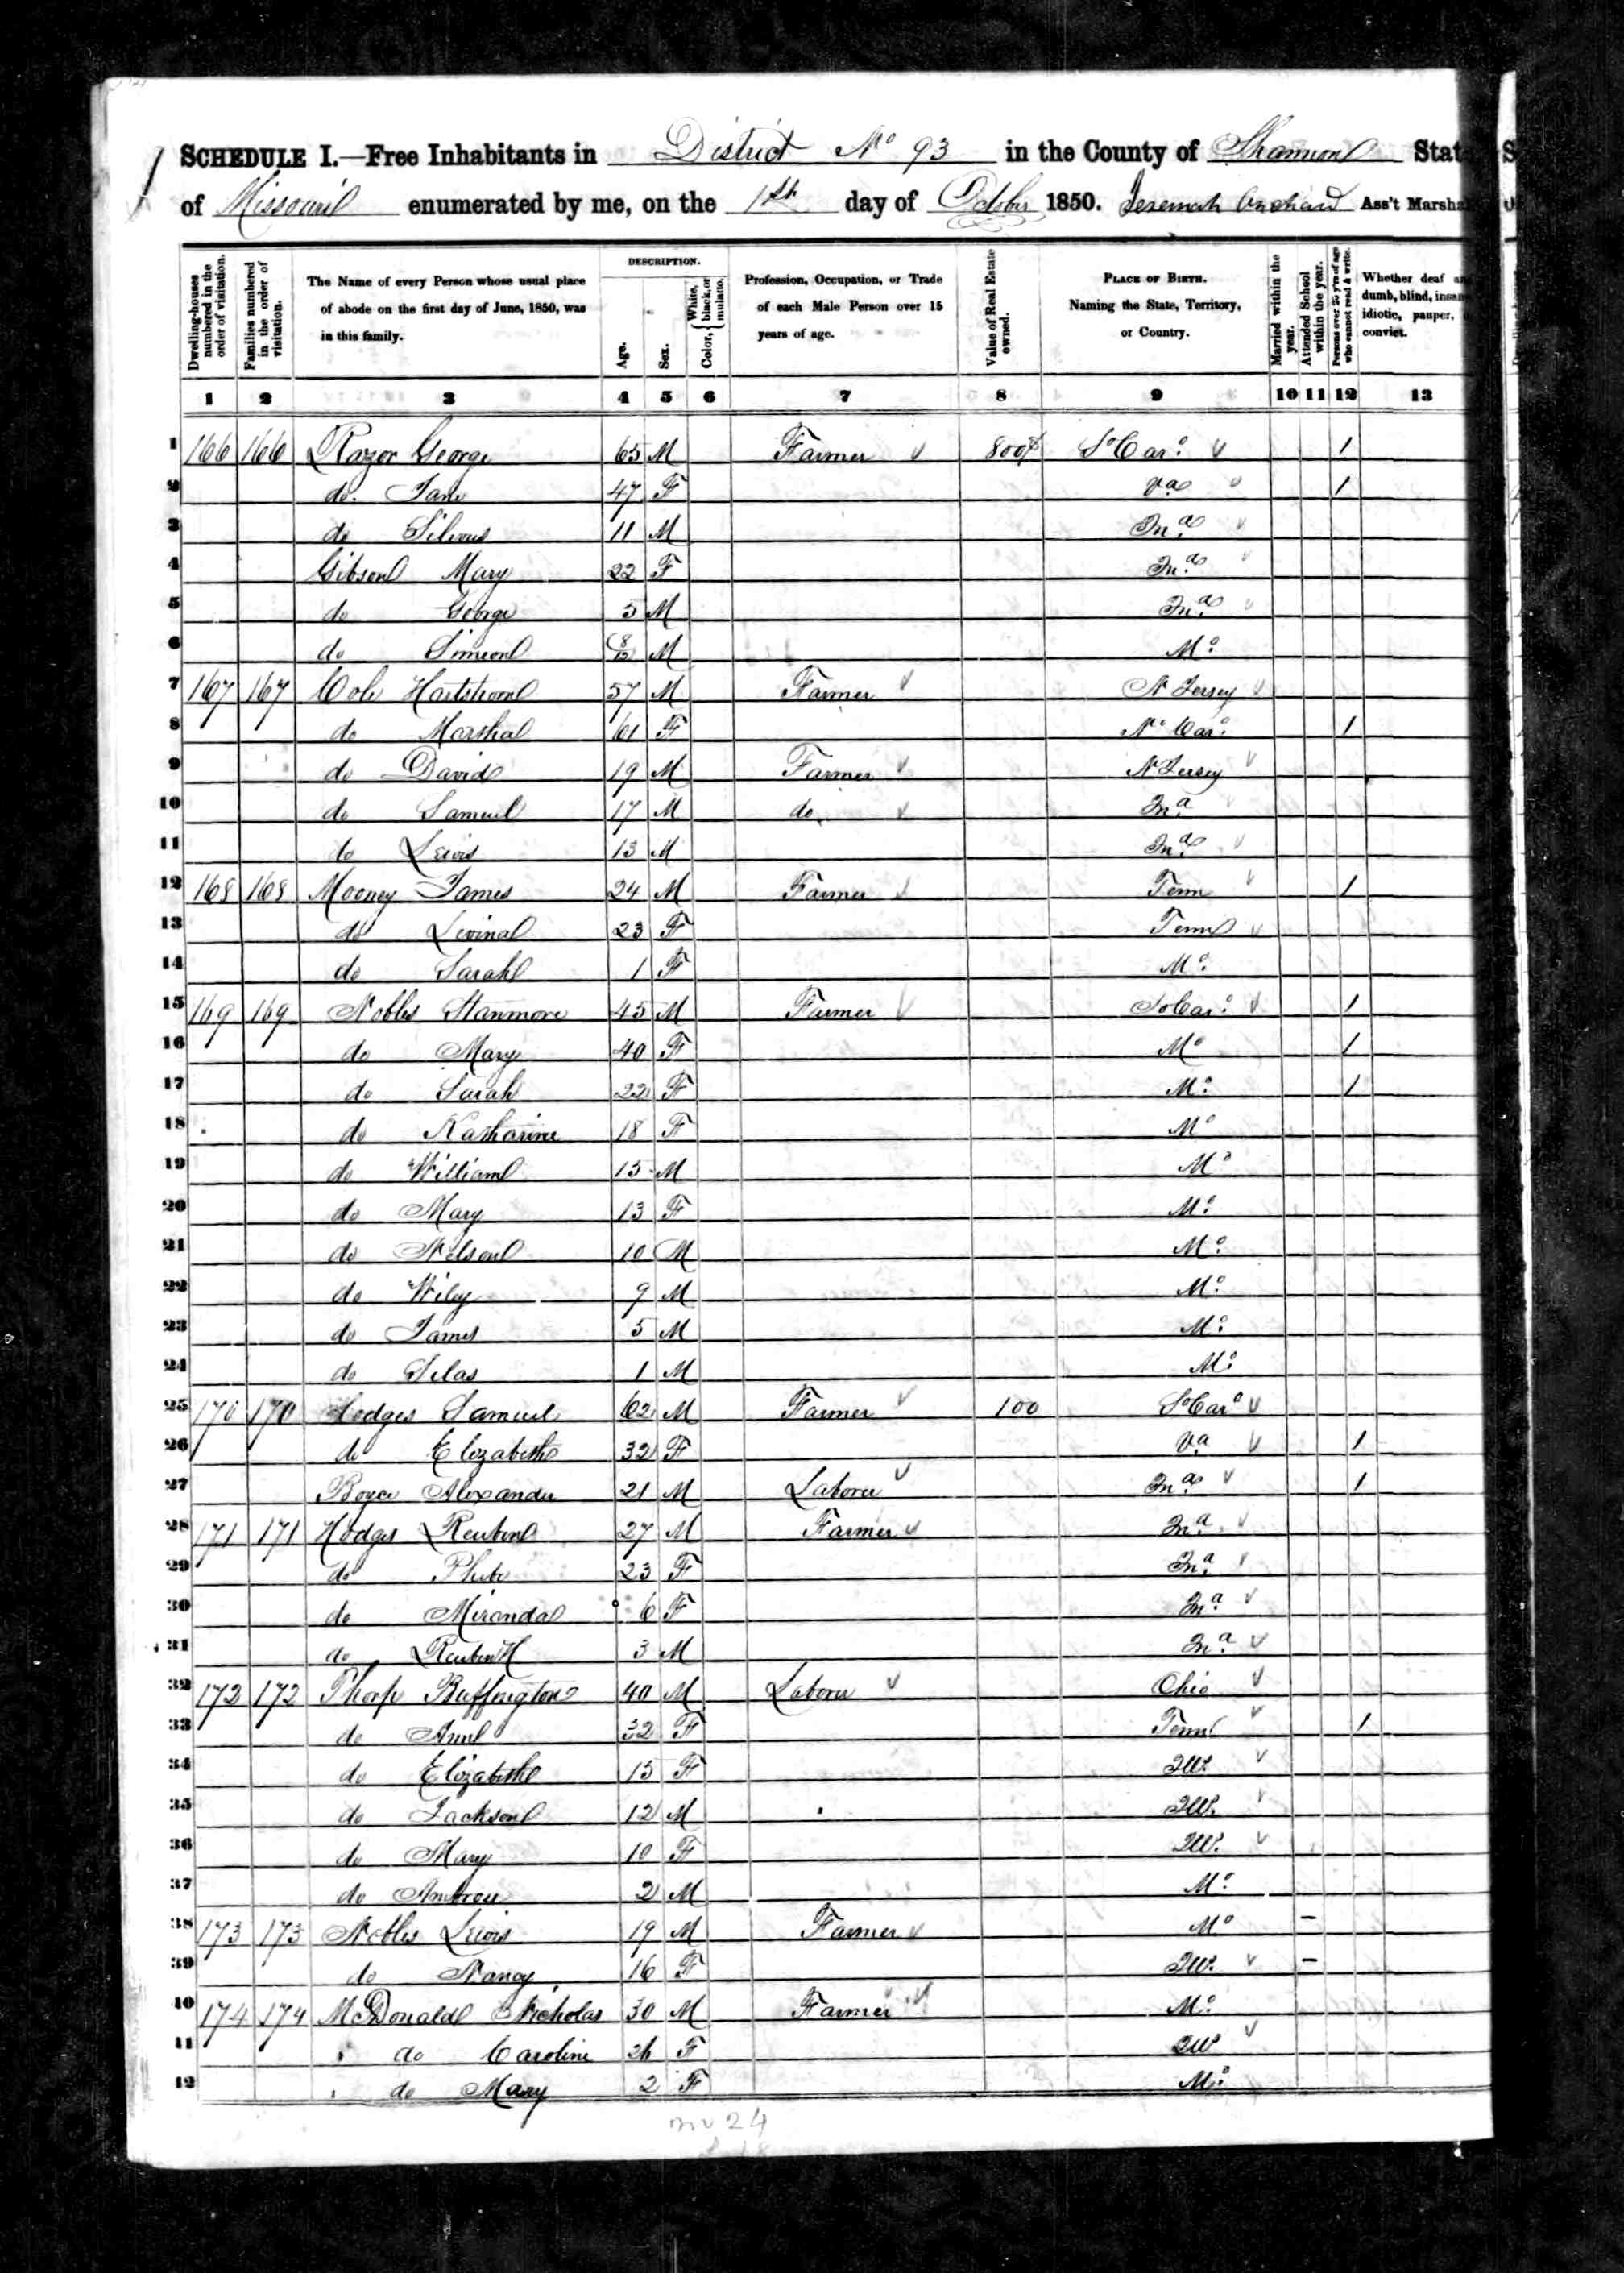 SCHEDULE I.—Free Inhabitants in District No 93 in the County of Shannon State
of Missouri enumerated by me, on the 1st day of October 1850. Jeremiah Orchard Ass't Marshal
Dwelling-houses numbered in the order of visitation.
Families numbered in the order of visitation.
The Name of every Person whose usual place of abode on the first day of June, 1850, was in this family.
DESCRIPTION.
Age.
Sex.
Color, { White, black, or mulatto.
Profession, Occupation, or Trade of each Male Person over 15 years of age.
Value of Real Estate owned.
PLACE OF BIRTH. Naming the State, Territory, or Country.
Married within the year.
Attended School within the year.
Persons over 20 y'rs of age who cannot read & write.
Whether deaf and dumb, blind, insane, idiotic, pauper, convict.
1 2 3 4 5 6 7 8 9 10 11 12 13
1 166 166 Razor George 65 M Farmer 800 So Car. 1
2 do. Jane 47 F Va 1
3 do 11 M Ina
4 Gibson Mary 22 F Ina
5 do George 5 M Ina
6 do Simeon 8/12 M Mo
7 167 167 Cole 57 M Farmer N Jersey
8 do Marshal 61 F No Car. 1
9 do David 19 M Farmer N Jersey
10 do Samuel 17 M do Ina
11 do Lewis 13 M Ina
12 168 168 Mooney James 24 M Farmer Tenn 1
13 do Levina 23 F Tenn
14 do Sarah 1 F Mo
15 169 169 Nobles Stanmore 45 M Farmer So Car. 1
16 do Mary 40 F Mo 1
17 do Sarah 22 F Mo 1
18 do Katharine 18 F Mo
19 do William 15 M Mo
20 do Mary 13 F Mo
21 do Nelson 10 M Mo
22 do Wiley 9 M Mo
23 do James 5 M Mo
24 do Silas 1 M Mo
25 170 170 Samuel 62 M Farmer 100 So Car
26 do Elizabeth 32 F Va 1
27 Boyce Alexander 21 M Laborer Ina 1
28 171 171 Hodges Reuben 27 M Farmer Ina
29 do Phebe 23 F Ina
30 do Miranda 6 F Ina
31 do Reuben H 3 M Ina
32 172 172 Thorp Buffington 40 M Laborer Ohio
33 do Ann 32 F Tenn 1
34 do Elizabeth 15 F Ill.
35 do Jackson 12 M Ill.
36 do Mary 10 F Ill.
37 do Andrew 2 M Mo
38 173 173 Nobles Lewis 19 M Farmer Mo –
39 do Nancy 16 F Ill. –
40 174 174 McDonald Nicholas 30 M Farmer Mo
41 do Caroline 26 F Ill
42 do Mary 2 F Mo
24